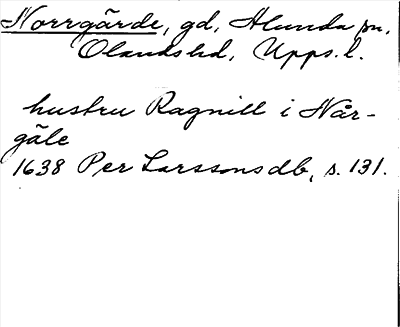 Norrgärde, gd, Alunda sn,
Olandshd, Upps. l.
hustru Ragnill i Når-
gäle
1638 Per Larssons db, s. 131.